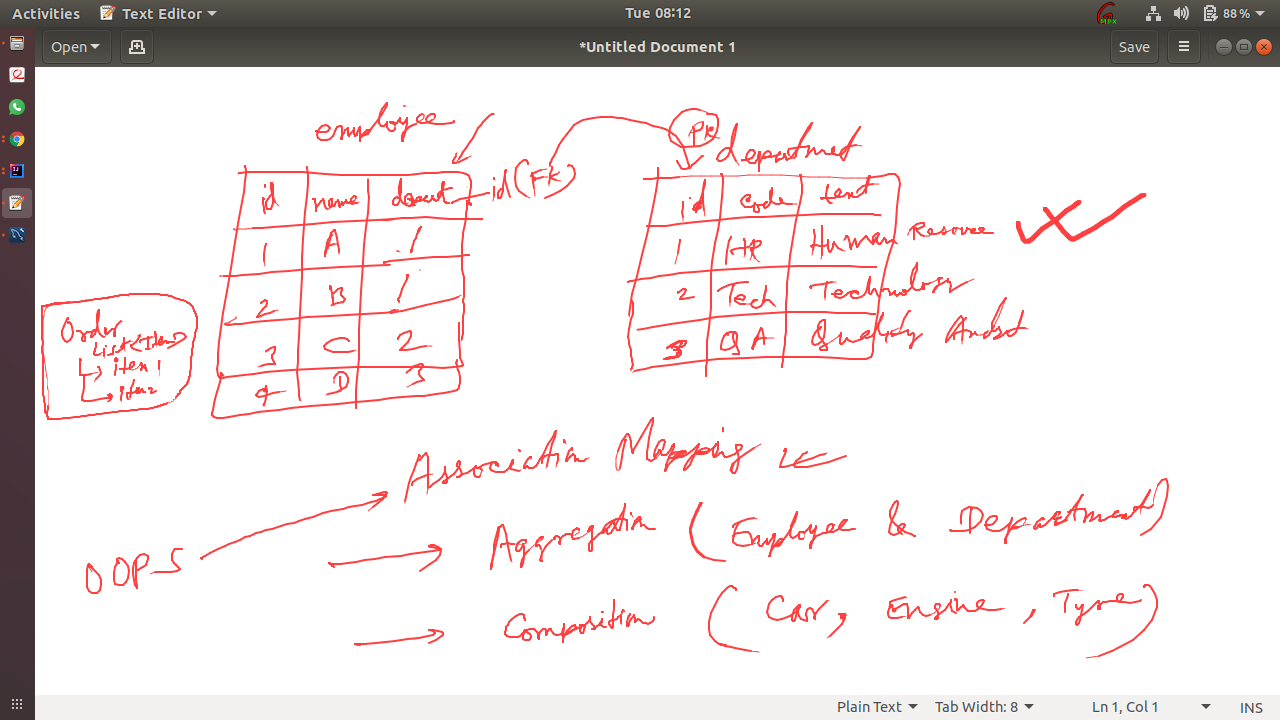 Activities Text Editor Tue 08:12 88%
Open *Untitled Document 1 Save
employee
PK
department
id (FK)
id name
id code text
1 A 1
1 HR Human Resource
2 B 1
2 Tech Technology
3 C 2
3 QA Quality
4 D 3
Order
List<Item>
item 1
item 2
Association Mapping
OOPS
Aggregation (Employee & Department)
Composition (Car, Engine, Tyre)
Plain Text Tab Width: 8 Ln 1, Col 1 INS